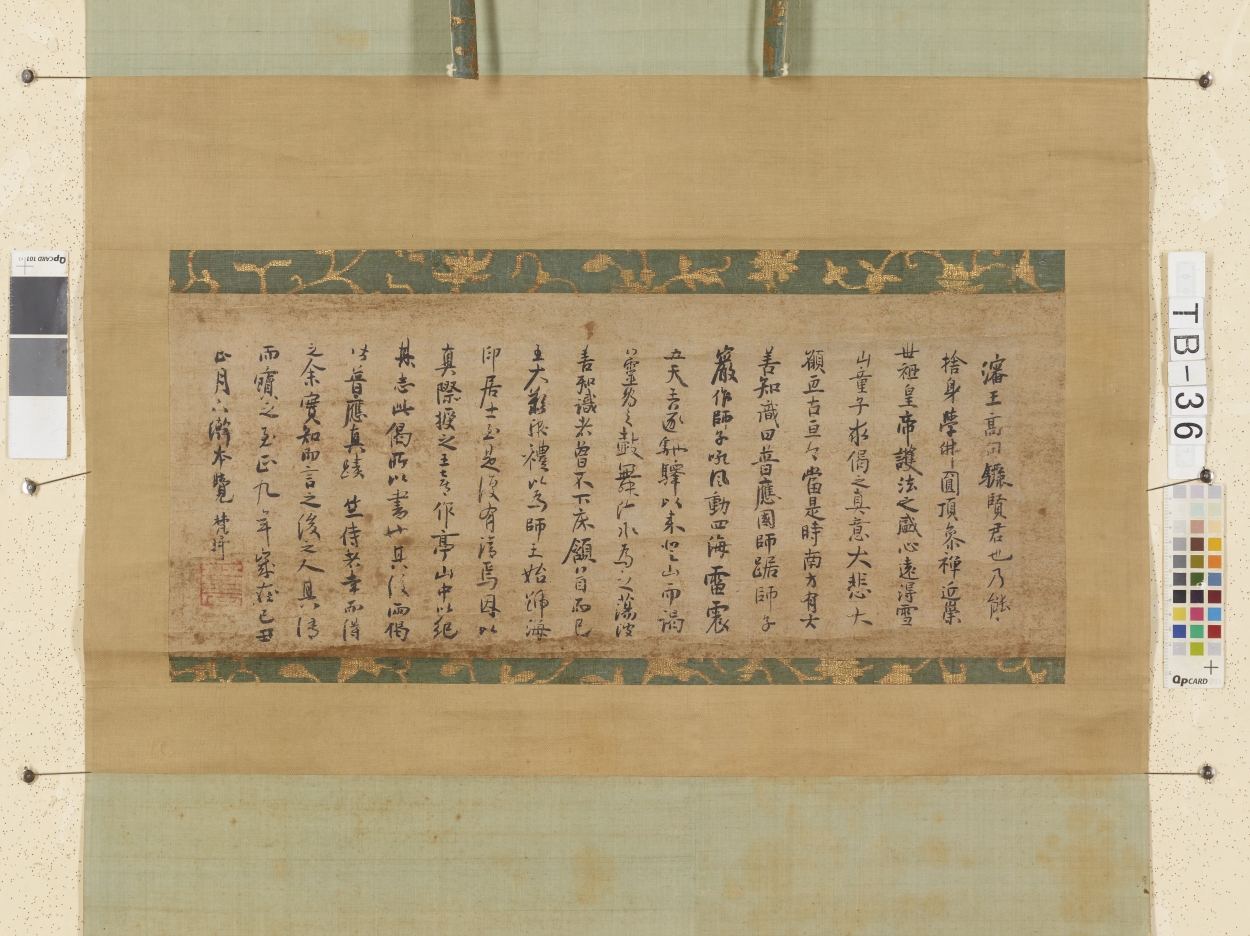 瀋王高句驪賢君也乃能
捨身學佛圓頂參禪近樂
世祖皇帝護法之盛心遠得雪
山童子求偈之真意大悲大
願亘古亘今當是時南方有大
善知識曰普應國師踞師子
巖作師子吼風動四海雷震
五天王遂馳驛以來登山而謁
靈為之鼓舞海水為之蕩波
善知識老曾不下床頷首而已
王大歎服禮以為師王始歸海
印居士至是復有請焉因以
真際授之王喜作亭山中以紀
其志此偈所以書也其後而偈
皆普應真蹟 侍者幸而得
之余實知而言之後之人其傳
而寶之至正九年歲在己丑
正月六 本覺
TB-36
QPCARD
QPCARD 101